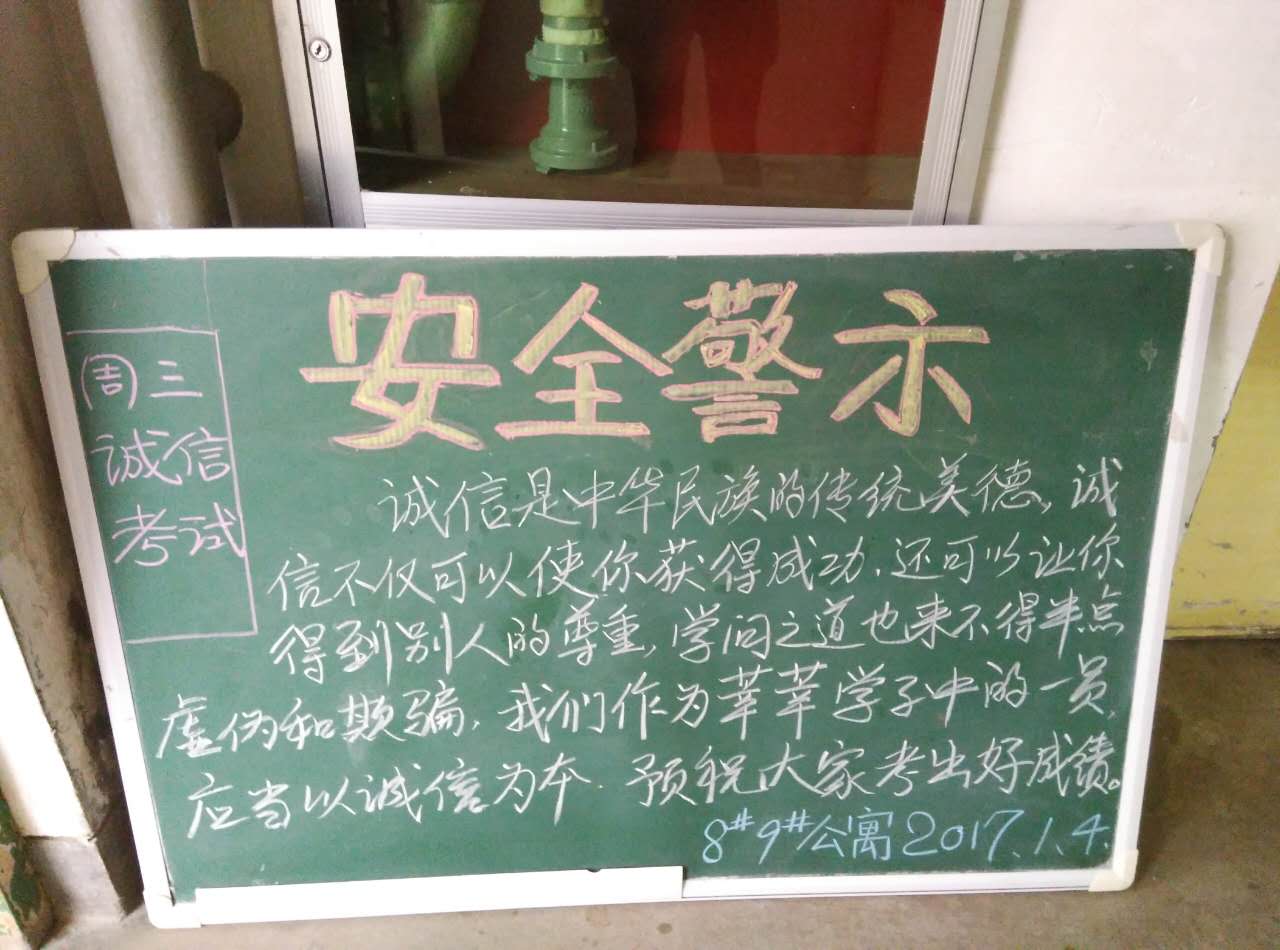 安全警示
周三
诚信
考试
诚信是中华民族的传统美德，诚
信不仅可以使你获得成功，还可以让你
得到别人的尊重，学问之道也来不得半点
虚伪和欺骗，我们作为莘莘学子中的一员，
应当以诚信为本．预税大家考出好成绩。
8#9#公寓2017.1.4.